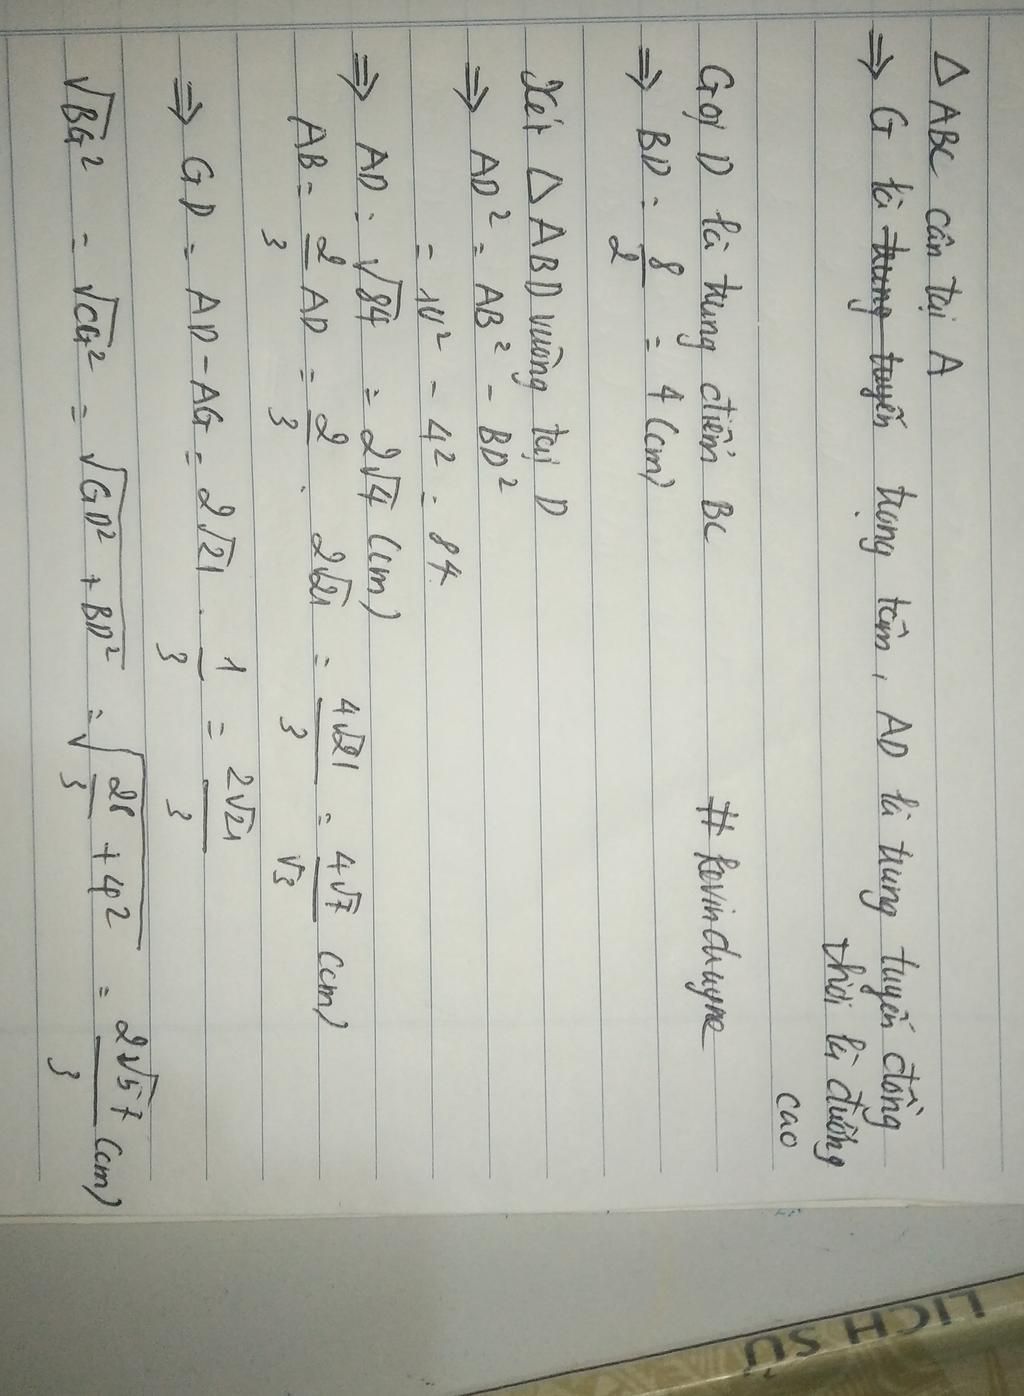 △ ABC cân tại A
⇒ G là trung tuyến trọng tâm, AD là trung tuyến đồng
thời là đường
cao
Gọi D là trung điểm BC # kevinduyne
⇒ BD = 8/2 = 4 (cm)
Xét △ ABD vuông tại D
⇒ AD² = AB² - BD²
= 10² - 4² = 84
⇒ AD = √84 = 2√4 (cm)
AB = 2/3 AD = 2/3 . 2√21 = 4√21/3 = 4√7/√3 (cm)
⇒ GD = AD - AG = 2√21 . 1/3 = 2√21/3
√BG² = √CG² = √GD² + BD² = √28/3 + 4² = 2√57/3 (cm)
LỊCH SỬ